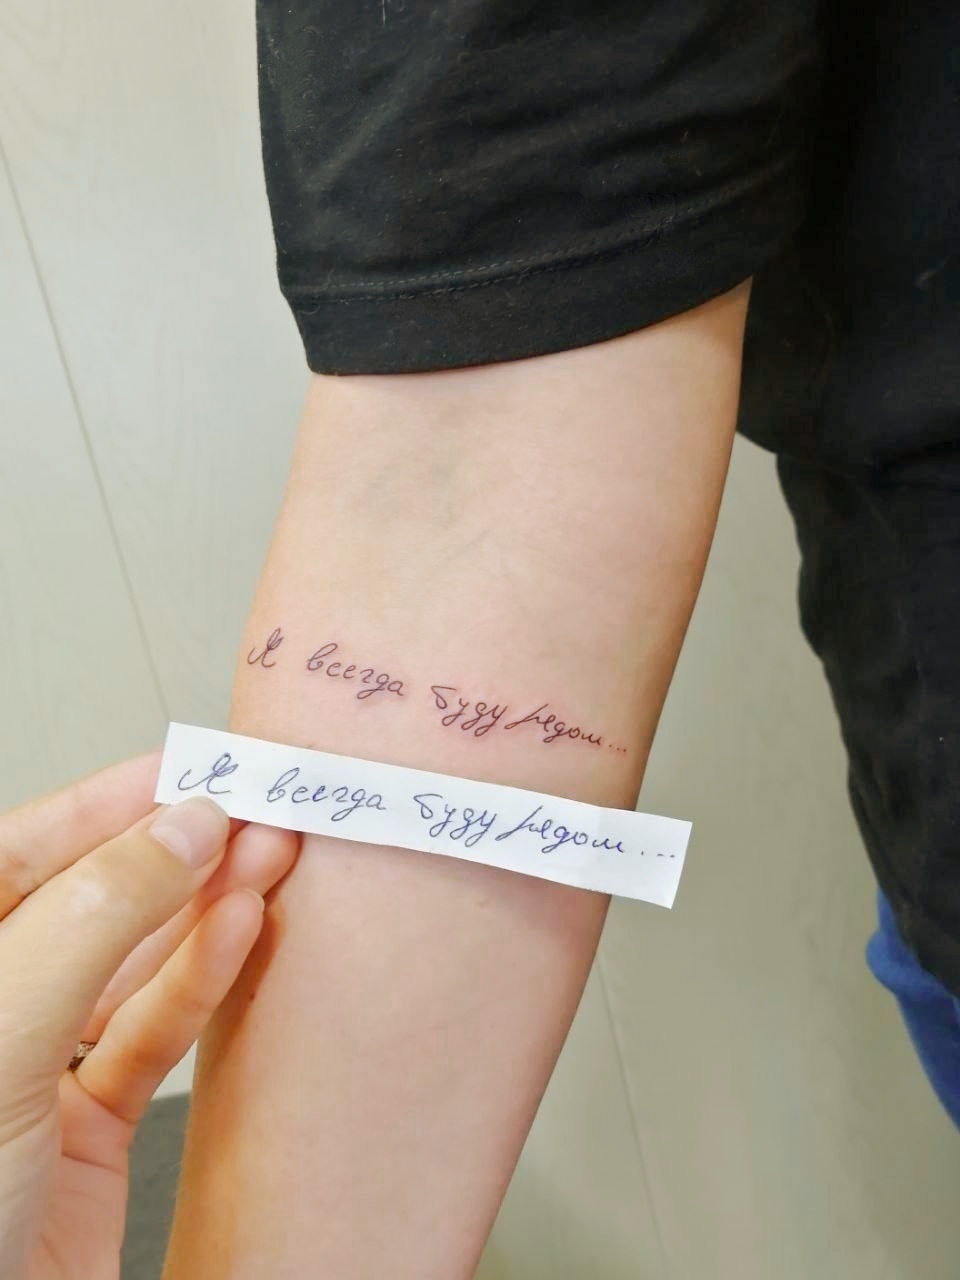 Я всегда буду рядом...
Я всегда буду рядом...